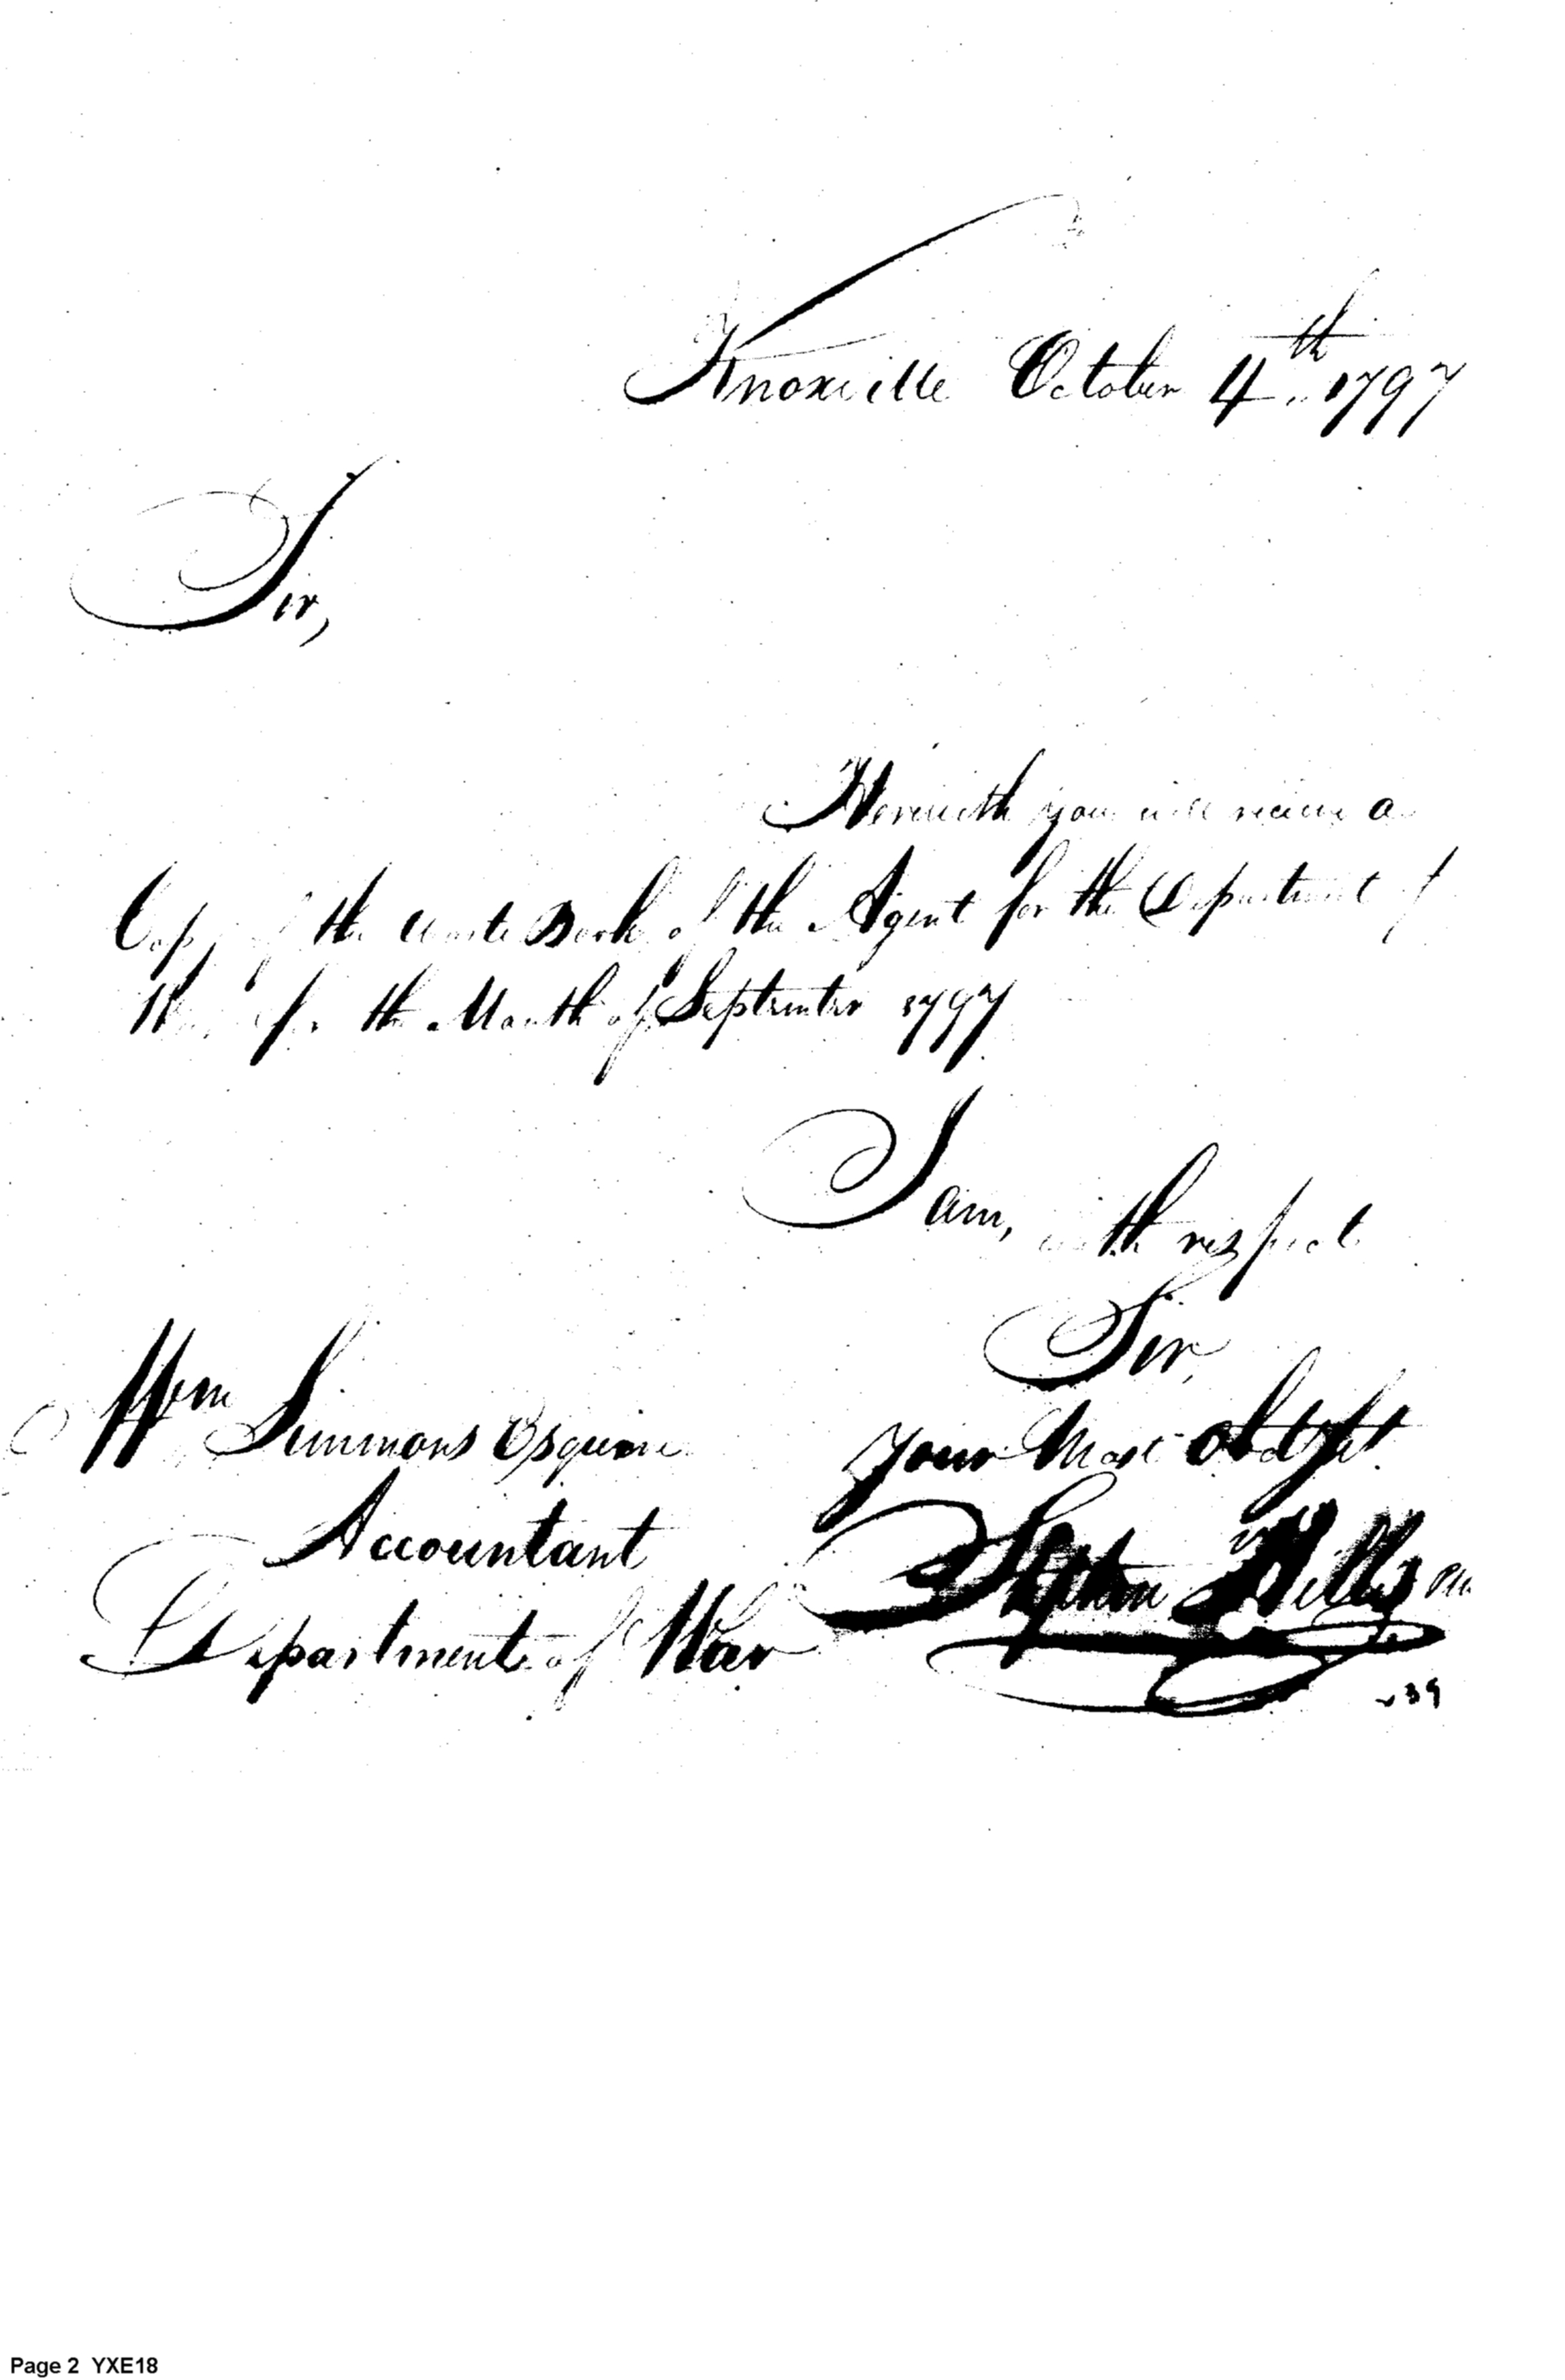 Knoxville October 4th 1797
Sir,
Herewith you will receive a
Copy of the Waste Book of the Agent for the Department of
War for the Month of September 1797
I am, with respect
Sir,
Wm Simmons Esquire
Your Most obdt
Accountant
Stephen Hillis
Department of War
39
Page 2 YXE18